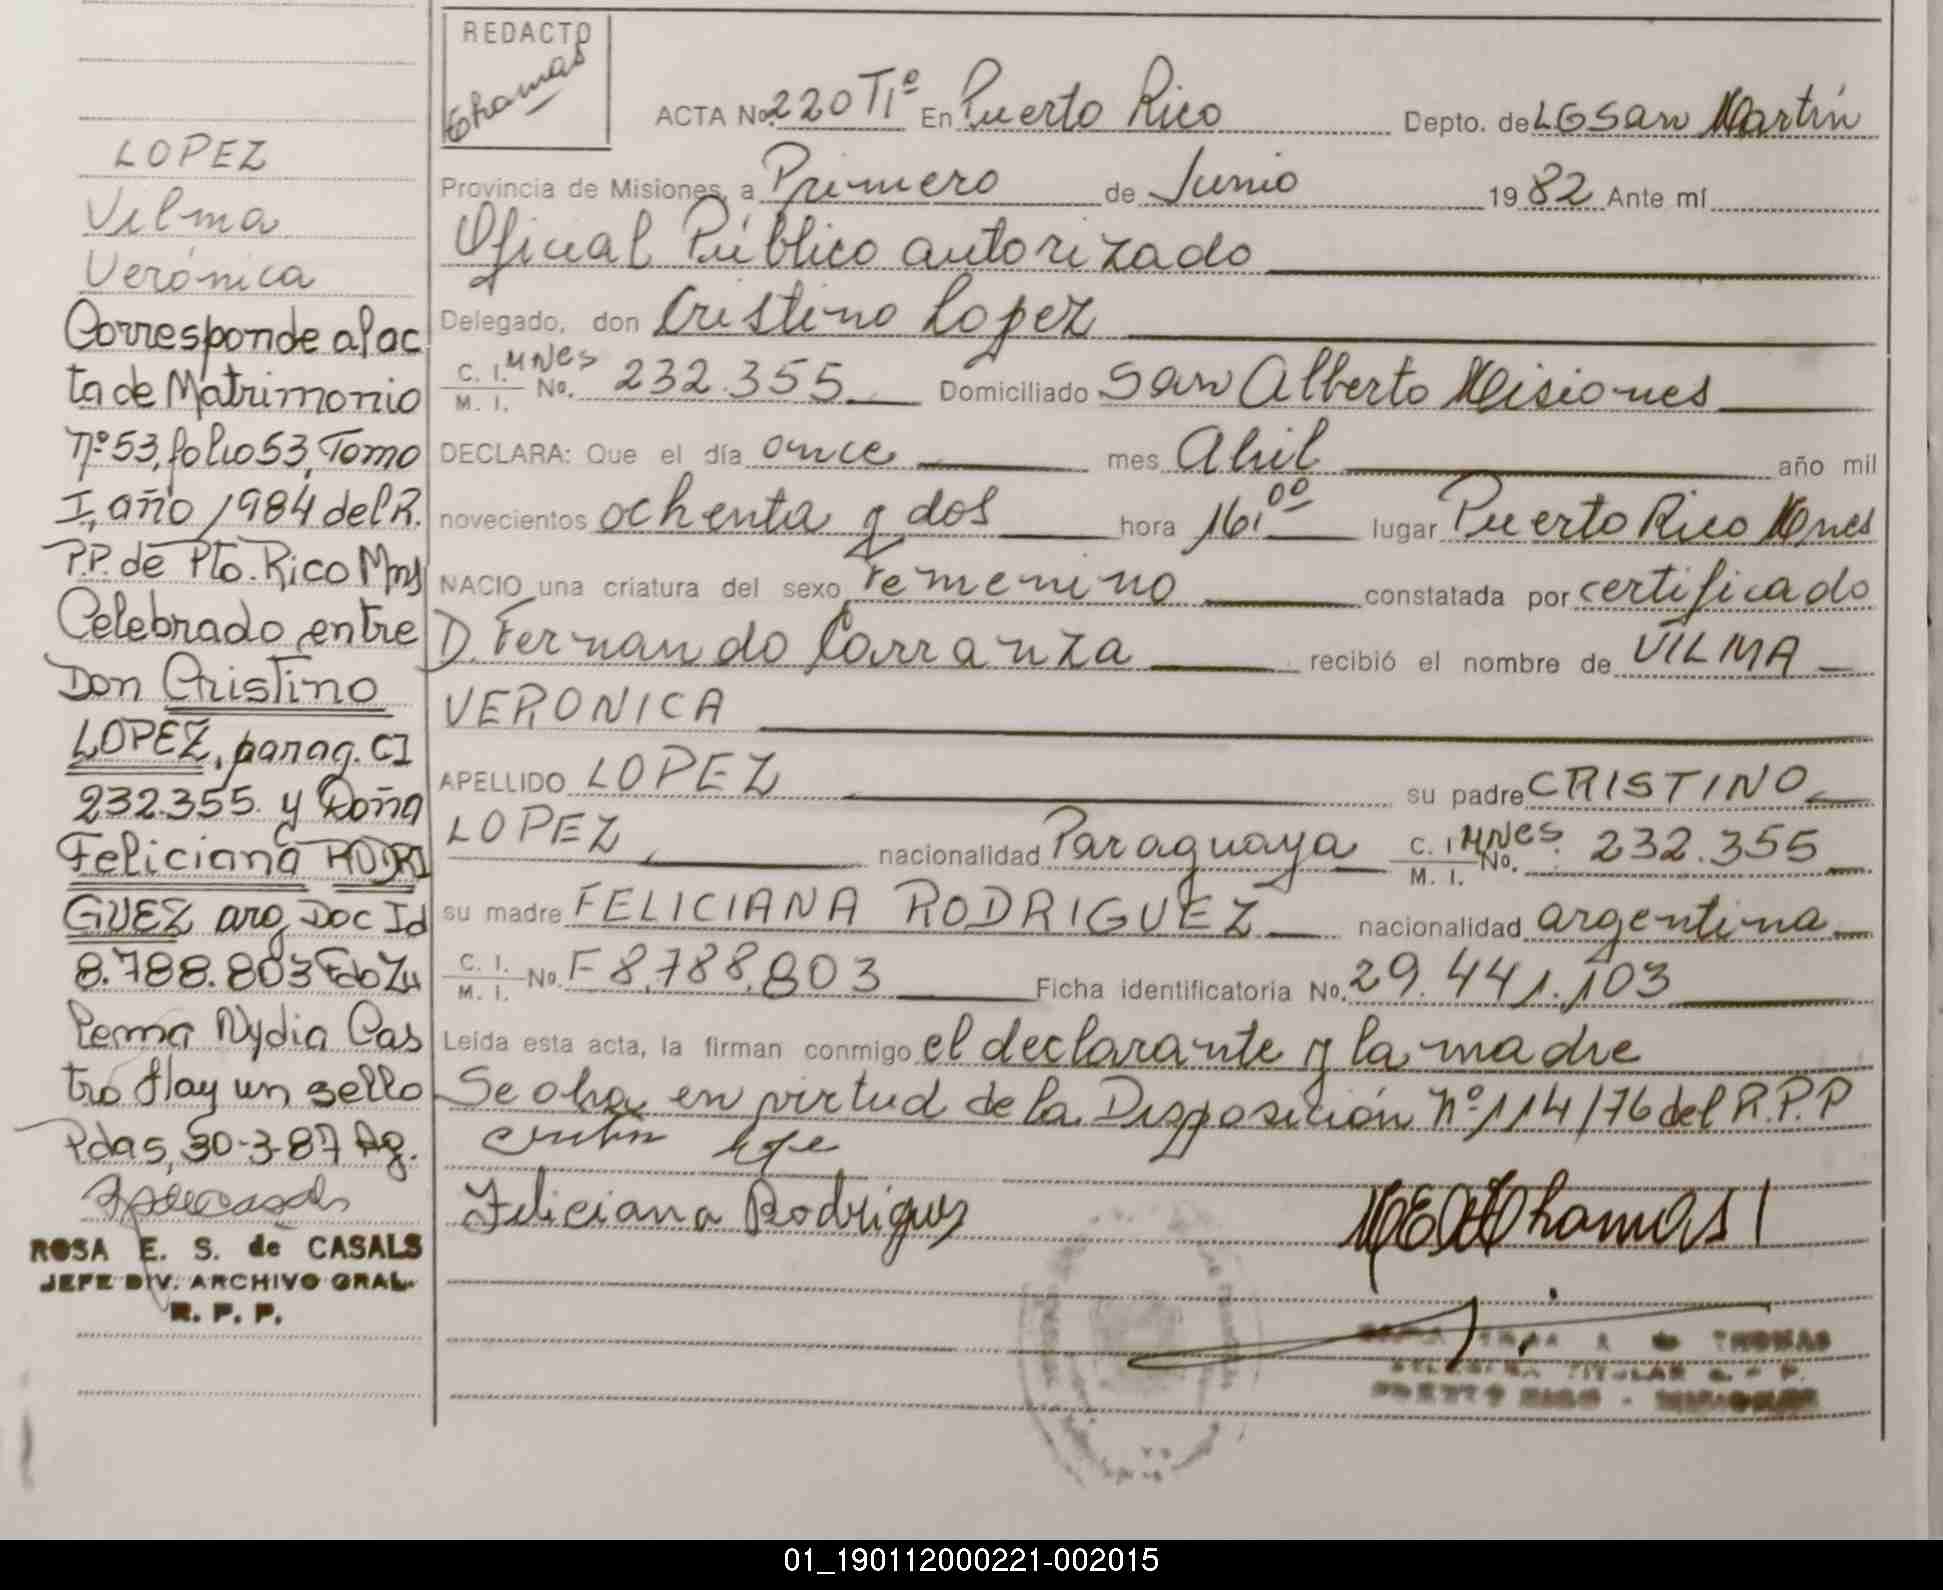 LOPEZ
Vilma
Verónica
Corresponde al ac
ta de Matrimonio
Nº 53, folio 53, Tomo
I, año 1984 del R.
P.P. de Pto. Rico Mns
Celebrado entre
Don Cristino
LOPEZ, parag. CI
232.355. y Doña
Feliciana RODRI
GUEZ arg Doc Id
8.788.803 Fdo Zu
lema Nydia Cas
tro Hay un sello
Pdas, 30-3-87 Ag.
ROSA E. S. de CASALS
JEFE DIV. ARCHIVO GRAL.
R. P. P.
REDACTO
Thomas
ACTA No. 220 Tº Iº En Puerto Rico Depto. de LG San Martín
Provincia de Misiones, a Primero de Junio 1982 Ante mí
Oficial Público autorizado
Delegado, don Cristino Lopez
C. I. M. I. Mnes No. 232.355 Domiciliado San Alberto Misiones
DECLARA: Que el día once mes Abril año mil
novecientos ochenta y dos hora 16:00 lugar Puerto Rico Mnes
NACIO una criatura del sexo femenino constatada por certificado
D. Fernando Carranza recibió el nombre de VILMA
VERONICA
APELLIDO LOPEZ su padre CRISTINO
LOPEZ nacionalidad Paraguaya C. I. M. I. MNes. No. 232.355
su madre FELICIANA RODRIGUEZ nacionalidad argentina
C. I. M. I. No. F 8.788.803 Ficha identificatoria No. 29.441.103
Leída esta acta, la firman conmigo el declarante y la madre
Se obra en virtud de la Disposición Nº 114/76 del R.P.P
Feliciana Rodriguez
THOMAS
TITULAR
PUERTO RICO - MISIONES
01_190112000221-002015